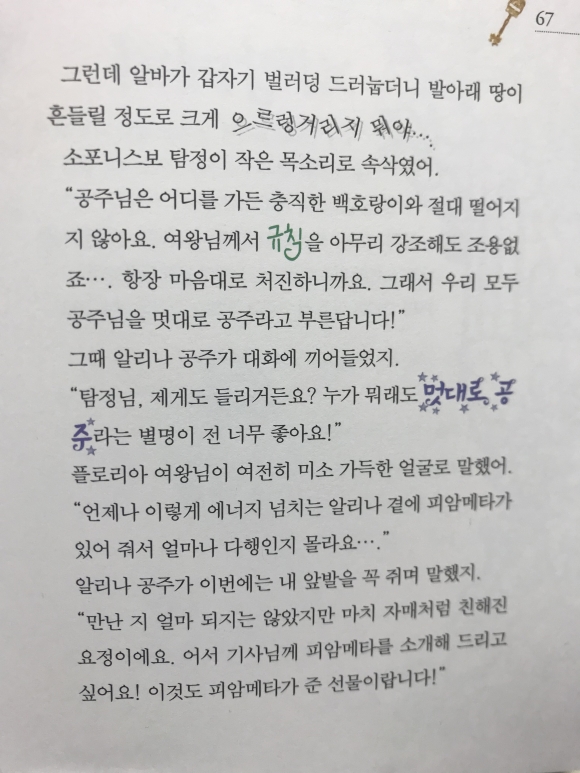 67
그런데 알바가 갑자기 벌러덩 드러눕더니 발아래 땅이
흔들릴 정도로 크게 으르렁거리지 뭐야....
소포니스보 탐정이 작은 목소리로 속삭였어.
“공주님은 어디를 가든 충직한 백호랑이와 절대 떨어지
지 않아요. 여왕님께서 규칙을 아무리 강조해도 조용없
죠…. 항장 마음대로 처진하니까요. 그래서 우리 모두
공주님을 멋대로 공주라고 부른답니다!”
그때 알리나 공주가 대화에 끼어들었지.
“탐정님, 제게도 들리거든요? 누가 뭐래도 멋대로 공
주라는 별명이 전 너무 좋아요!”
플로리아 여왕님이 여전히 미소 가득한 얼굴로 말했어.
“언제나 이렇게 에너지 넘치는 알리나 곁에 피암메타가
있어 줘서 얼마나 다행인지 몰라요….”
알리나 공주가 이번에는 내 앞발을 꼭 쥐며 말했지.
“만난 지 얼마 되지는 않았지만 마치 자매처럼 친해진
요정이에요. 어서 기사님께 피암메타를 소개해 드리고
싶어요! 이것도 피암메타가 준 선물이랍니다!”